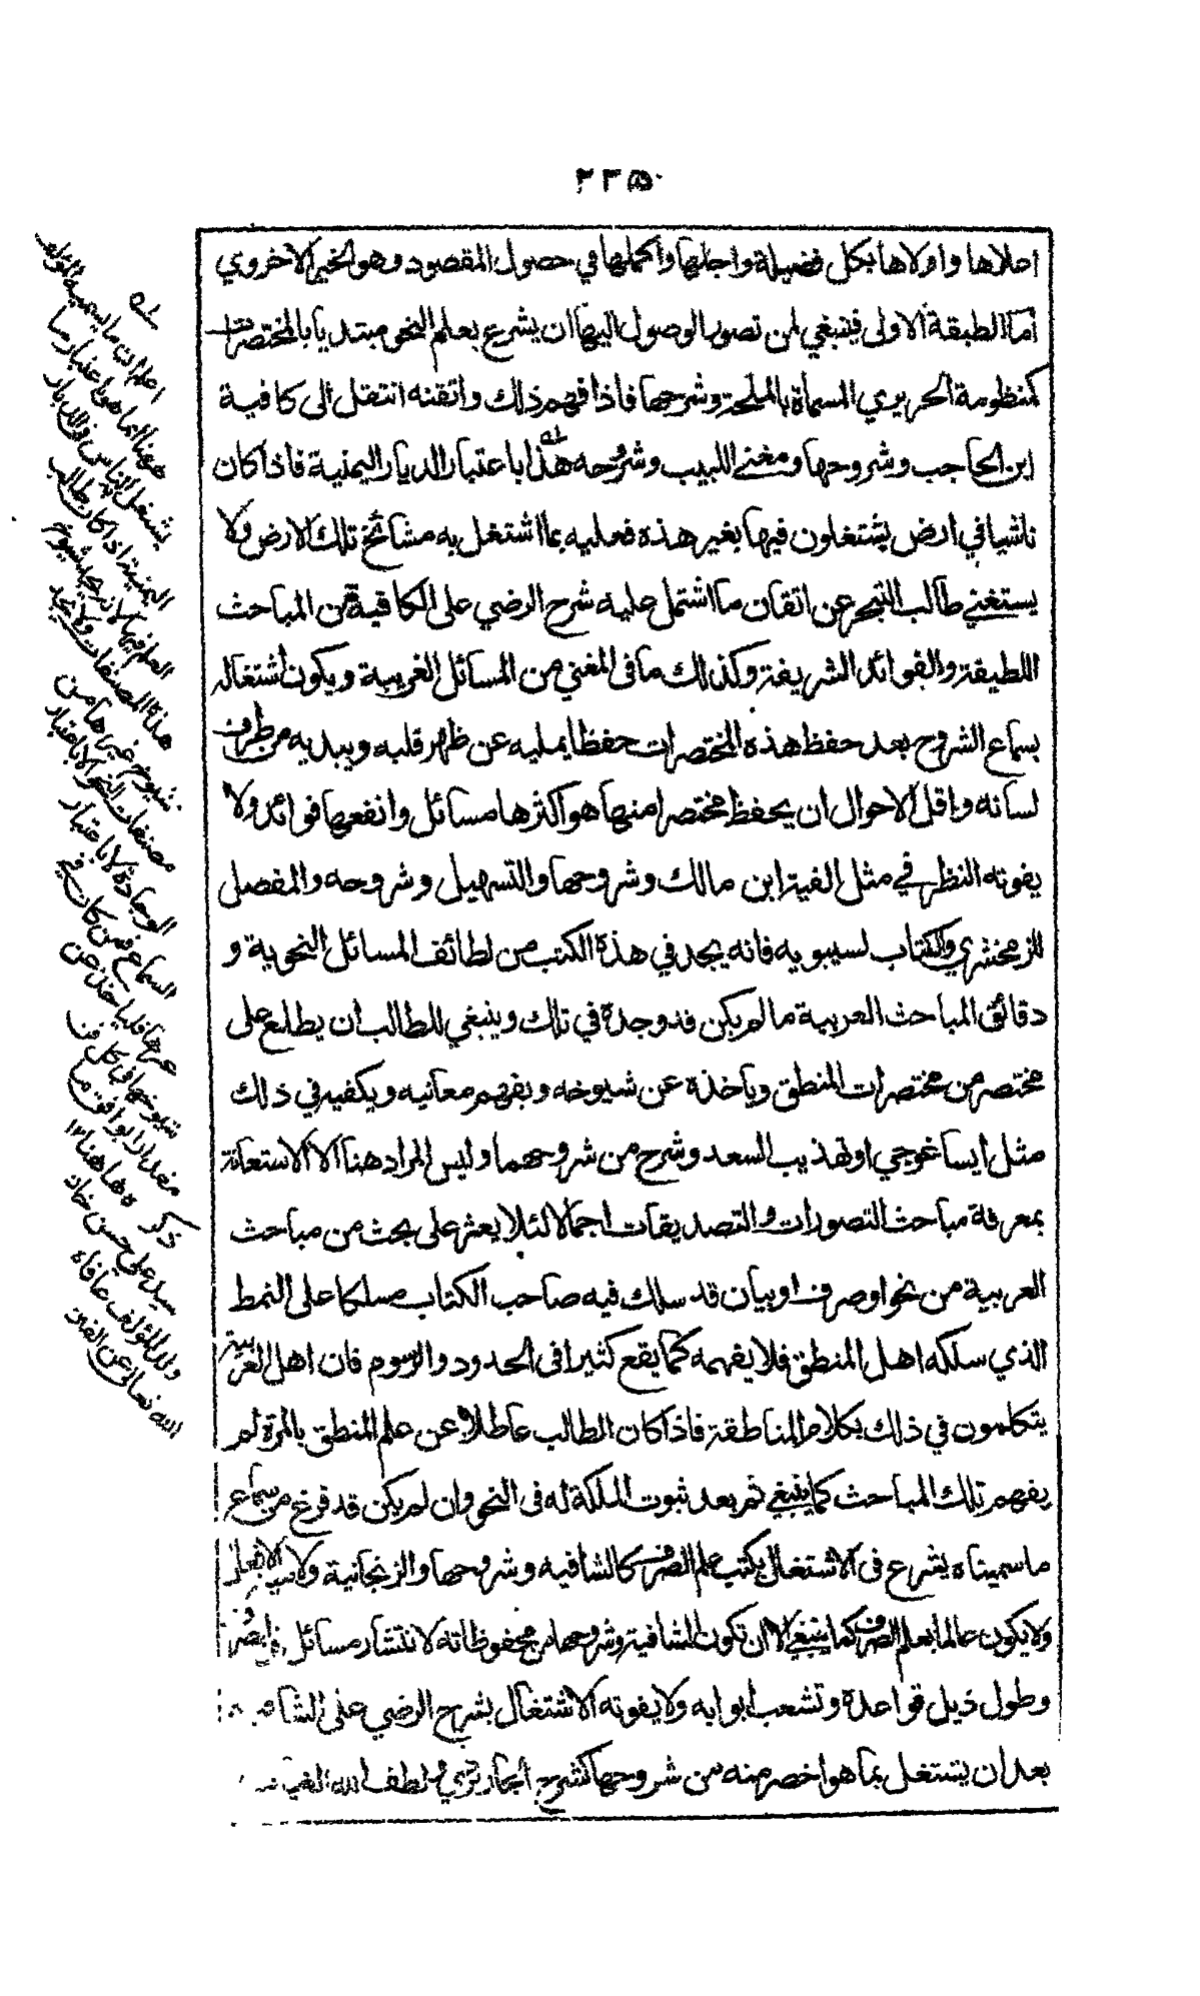 ٢٢٥
اعلاها واولاها بكل فضيلة واجلها واكملها في حصول المقصود وهو الخير الاخروي
اما الطبقة الاولى فينبغي لمن تصور الوصول اليها ان يشرع بعلم النحو مبتديا بالمختصرات
كمنظومة الحريري المسماة بالملحة وشرحها فاذا فهم ذلك واتقنه انتقل الى كافية
ابن الحاجب وشروحها ومغني اللبيب وشروحه هذا باعتبار الديار اليمنية فاذا كان
ناشيا في ارض يشتغلون فيها بغير هذه فعليه بما اشتغل به مشائخ تلك الارض ولا
يستغني طالب التبحر عن اتقان ما اشتمل عليه شرح الرضي على الكافية من المباحث
اللطيفة والفوائد الشريفة وكذلك ما فى المغني من المسائل الغريبة ويكون اشتغاله
بسماع الشروح بعد حفظ هذه المختصرات حفظا يمليه عن ظهر قلبه ويبديه من طرف
لسانه واقل الاحوال ان يحفظ مختصرا منها هو اكثرها مسائل وانفعها فوائد ولا
يفوته النظر في مثل الفية ابن مالك وشروحها والتسهيل وشروحه والمفصل
للزمخشري والكتاب لسيبويه فانه يجد في هذه الكتب من لطائف المسائل النحوية و
دقائق المباحث العربية ما لم يكن قد وجده في تلك وينبغي للطالب ان يطلع على
مختصر من مختصرات المنطق وياخذه عن شيوخه ويفهم معانيه ويكفيه في ذلك
مثل ايساغوجي او تهذيب السعد وشرح من شروحهما وليس المراد هنا الا الاستعانة
بمعرفة مباحث التصورات والتصديقات اجمالا لئلا يعثر على بحث من مباحث
العربية من نحو او صرف او بيان قد سلك فيه صاحب الكتاب مسلكا على النمط
الذي سلكه اهل المنطق فلا يفهمه كما يقع كثيرا فى الحدود والرسوم فان اهل العربية
يتكلمون في ذلك بكلام المناطقة فاذا كان الطالب عاطلا عن علم المنطق بالمرة لم
يفهم تلك المباحث كما ينبغي ثم بعد ثبوت الملكة له فى النحو وان لم يكن قد فرغ من سماع
ما سميناه يشرع فى الاشتغال بكتب علم الصرف كالشافيه وشروحها والزنجانية ولامية الافعال
ولا يكون عالما بعلم الصرف كما ينبغي الا ان تكون الشافية وشروحها من محفوظاته لانتشار مسائل فن الصرف
وطول ذيل قواعده وتشعب ابوابه ولا يفوته الاشتغال بشرح الرضي على الشافية
بعد ان يشتغل بما هو اخصر منه من شروحها كشرح الجاربردي ولطف الله الغياث
اعلم ان ما يسميه المؤلف
ههنا انما هو باعتبار ما
يشتغل الناس في الديار
اليمنية اذا كان طالب
العلم فيها لانه يجد شيوخ
هذه المصنفات ولا يجد
شيوخ غيرها من
مصنفات النحو الا باعتبار
الوجادة لا باعتبار
السماع فمن كان في
غيرها فليأخذ عن
شيوخها في كل فن
مقدارا يوافق ما
ذكره هاهنا ١٢
سيد علي حسن خان
ولد المؤلف عافاه
الله تعالى عن الفتن